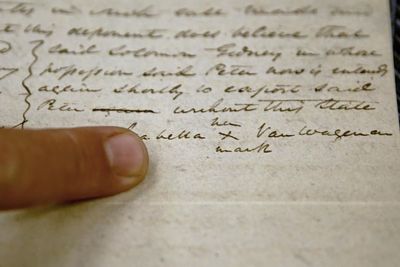 in such case made and
this deponent does believe that
said Solomon Gedney in whose
possession said Peter now is intends
again shortly to export said
Peter without this State
her
abella x Van Wageman
mark